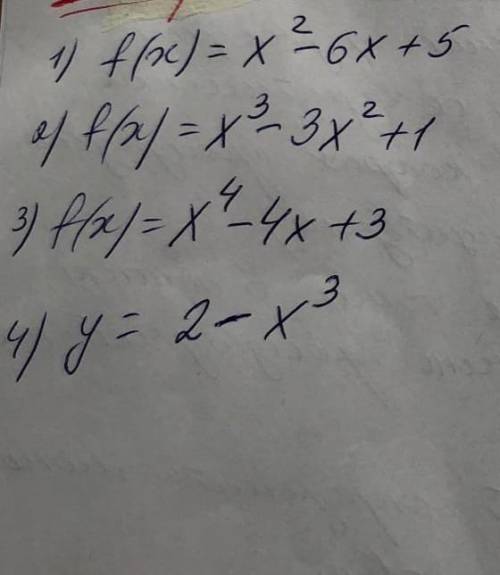 1) f(x) = x² - 6x + 5
2) f(x) = x³ - 3x² + 1
3) f(x) = x⁴ - 4x + 3
4) y = 2 - x³